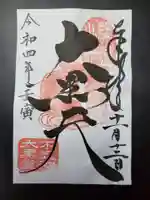 奉拝
十一月十二日
大黒天
令和四年壬寅